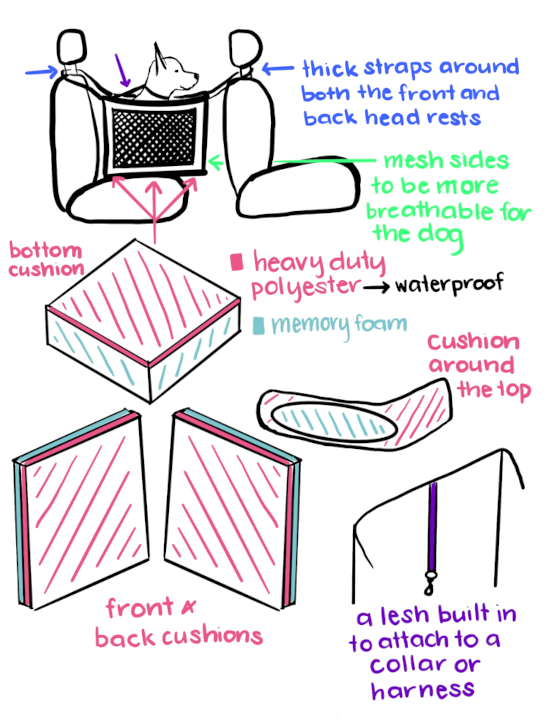 thick straps around
both the front and
back head rests
mesh sides
to be more
breathable for
the dog
bottom
cushion
heavy duty
polyester → waterproof
memory foam
Cushion
around
the top
front &
back cushions
a lesh built in
to attach to a
collar or
harness